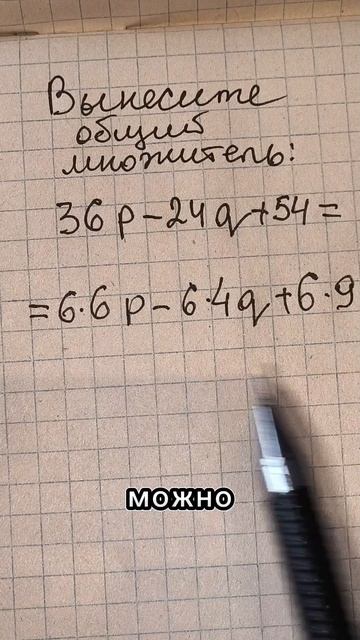 Вынесите
общий
множитель:
36p-24q+54=
=6·6p-6·4q+6·9
можно